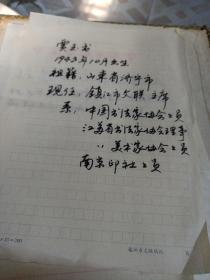 窦玉书
1943年10月出生
祖籍：山东省济宁市
现任：镇江市文联主席
系：中国书法家协会会员
江苏省书法家协会理事
〃 美术家协会会员
南京印社社员